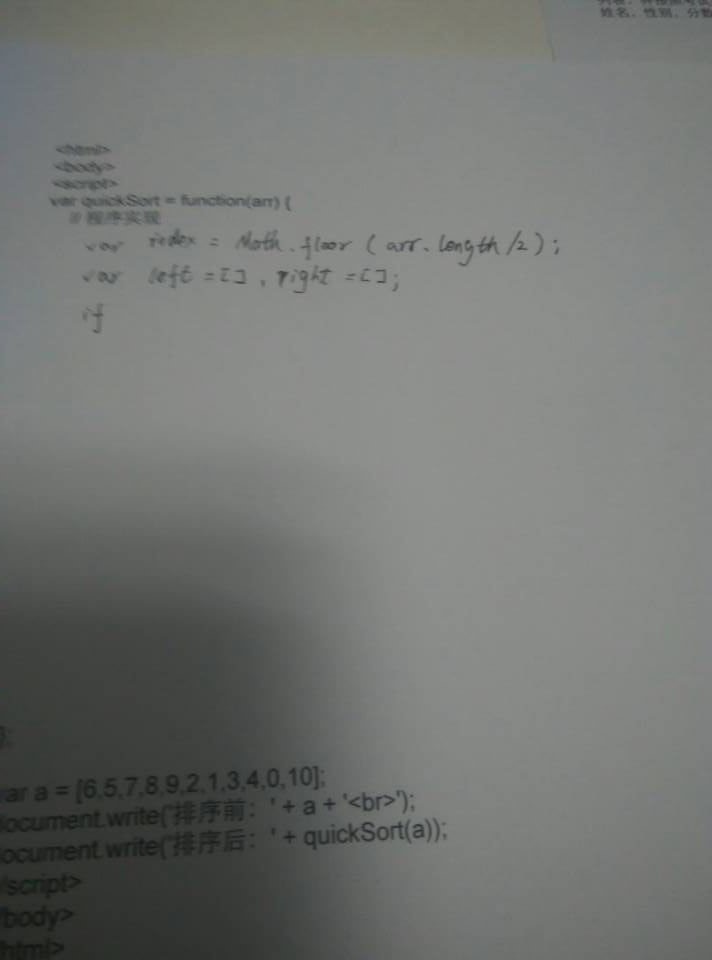 姓名、性别、分数
<html>
<body>
<script>
var quickSort = function(arr) {
// 程序实现
var index = Math.floor ( arr. length /2 );
var left = [] , right = [];
if
};
var a = [6,5,7,8,9,2,1,3,4,0,10];
document.write('排序前：' + a + '<br>');
document.write('排序后：' + quickSort(a));
</script>
</body>
</html>